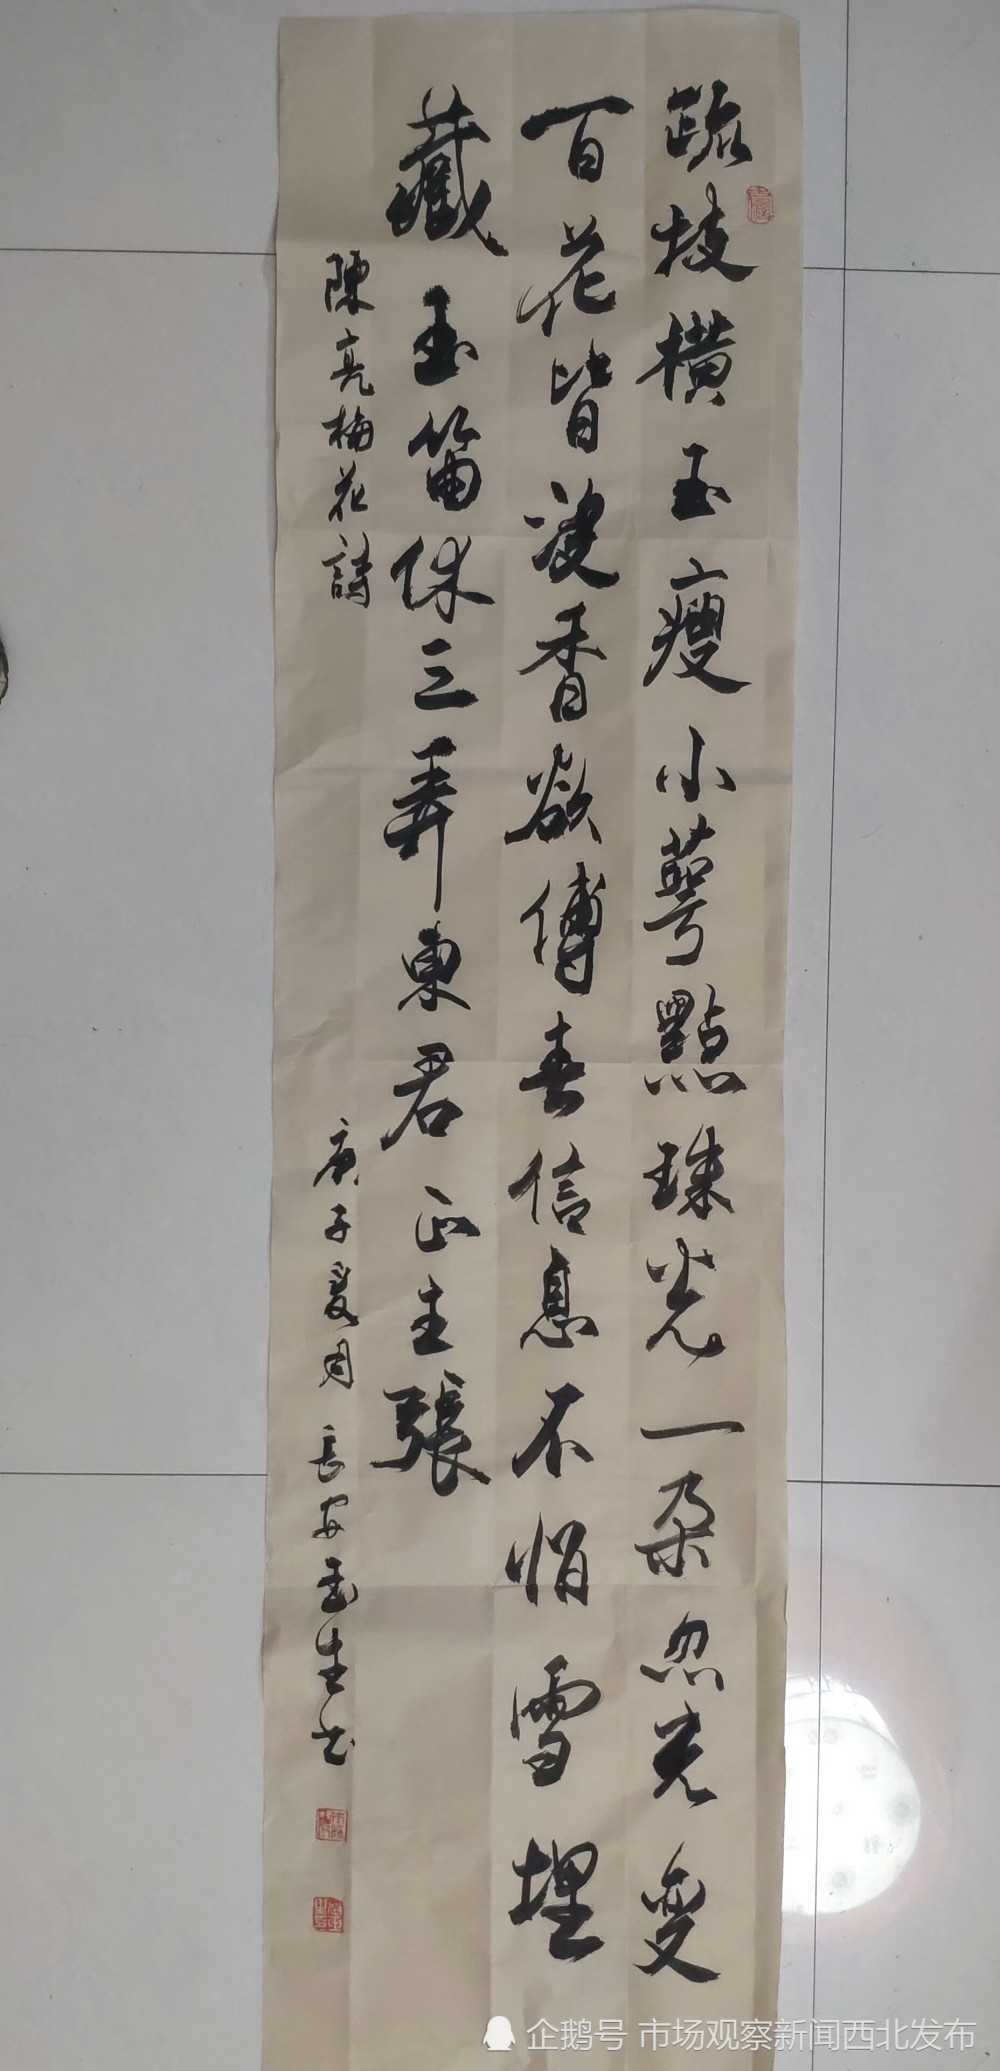 疏枝橫玉瘦小萼點珠光一朵忽先变
百花皆後香欲傳春信息不悄雪埋
藏玉笛休三弄東君正主張
陳亮梅花詩 庚子夏月 長安玉生书
企鹅号 市场观察新闻西北发布